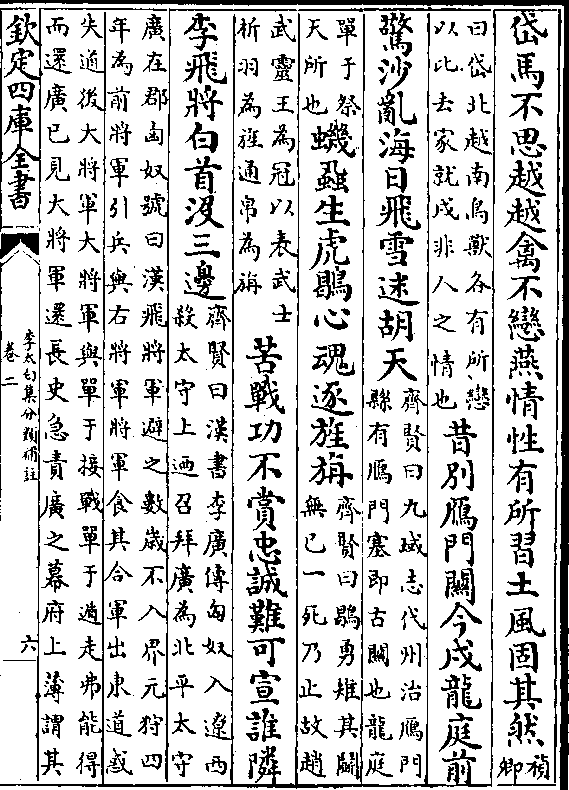 岱馬不思越越禽不戀燕情性有所習土風固其然禎
卿
曰岱北越南鳥獸各有所戀
以此去家就戍非人之情也
昔別鴈門關今戍龍庭前
驚沙亂海日飛雪迷胡天
齊賢曰九域志代州治鴈門
縣有鴈門塞即古關也龍庭
單于祭
天所也
蟣蝨生虎鶡心魂逐旌旃
齊賢曰鶡勇雉其鬬
無已一死乃止故趙
武靈王為冠以表武士
析羽為旌通帛為旃
苦戰功不賞忠誠難可宣誰隣
李飛將白首沒三邊
齊賢曰漢書李廣傳匈奴入遼西
殺太守上迺召拜廣為北平太守
廣在郡匈奴號曰漢飛將軍避之數歲不入界元狩四
年為前將軍引兵與右將軍將軍食其合軍出東道惑
失道後大將軍大將軍與單于接戰單于遁走弗能得
而還廣已見大將軍還長史急責廣之幕府上簿謂其
欽定四庫全書
李太白集分類補註
卷二
六